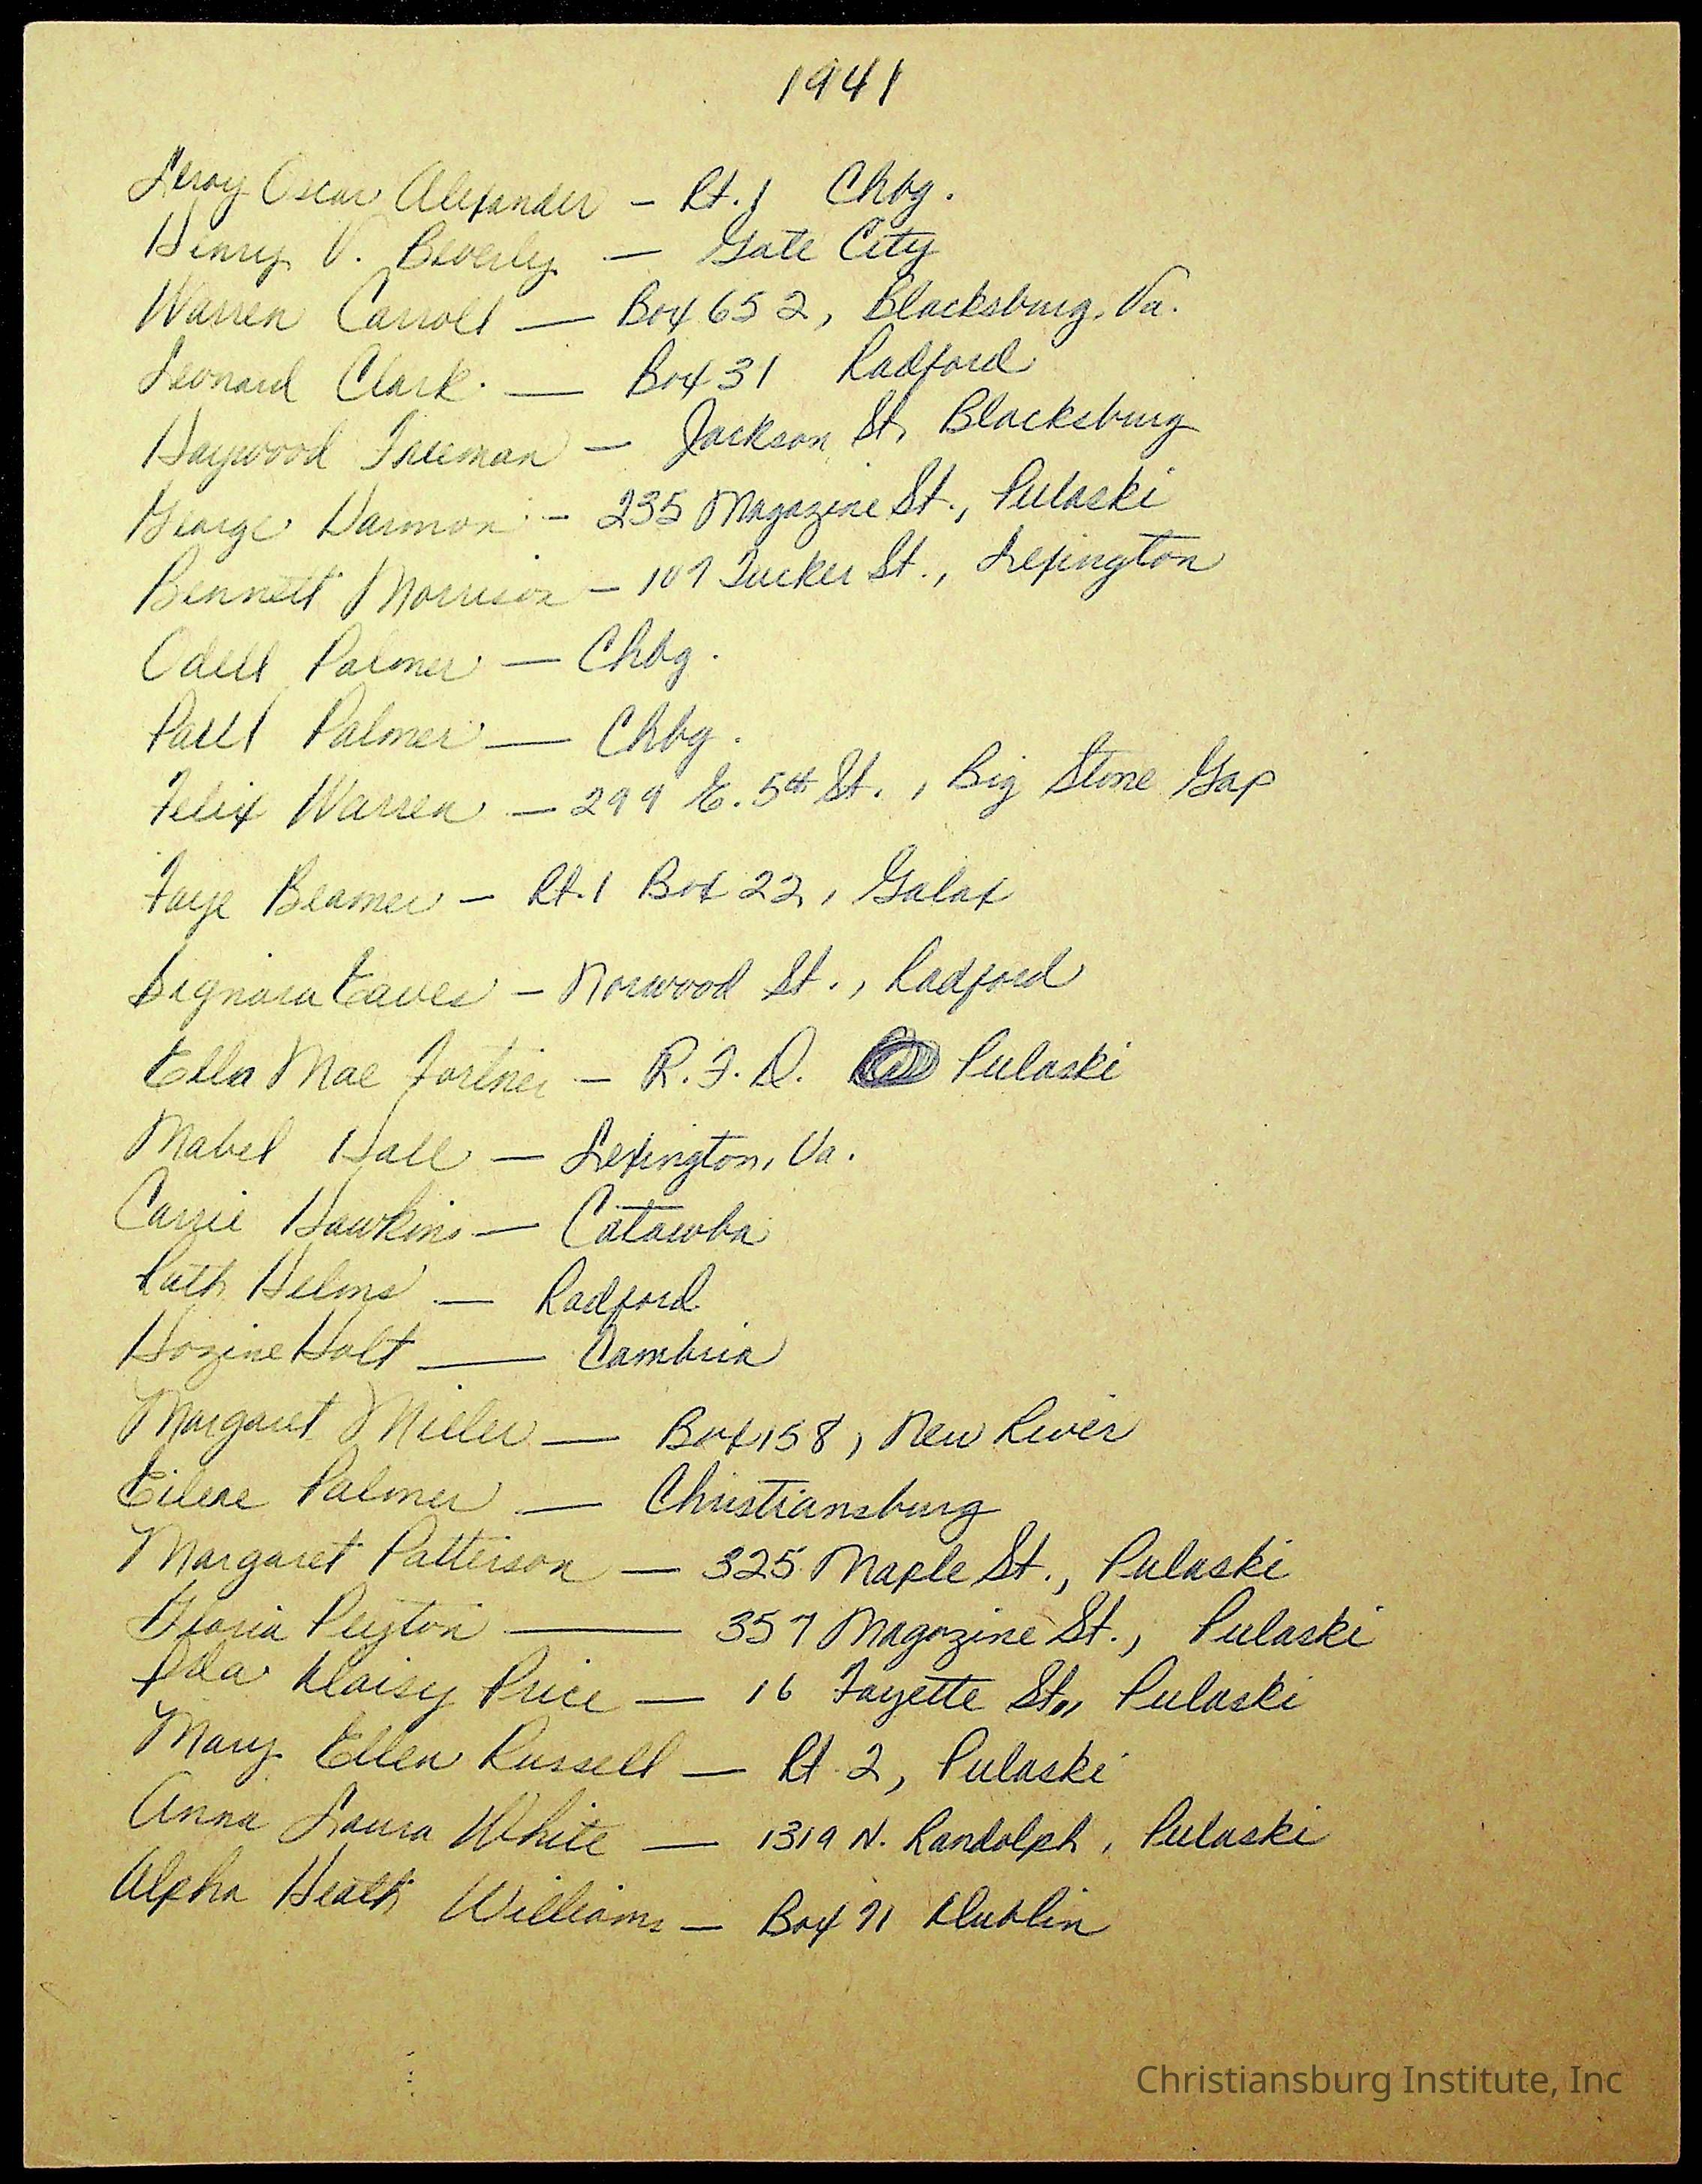 1941
Leroy Oscar Alexander - Rt. 1 Chbg.
Henry V. Beverly - Gate City
Warren Carroll - Box 652, Blacksburg, Va.
Leonard Clark - Box 31 Radford
Haywood Freeman - Jackson St, Blacksburg
George Harmon - 235 Magazine St., Pulaski
Bennett Morrison - 107 Tucker St., Lexington
Odell Palmer - Chbg.
Paul Palmer - Chbg.
Felix Warren - 299 E. 5th St., Big Stone Gap
Faye Beamer - Rt. 1 Box 22, Galax
Signora Eaves - Norwood St., Radford
Ella Mae Fortner - R.F.D. Pulaski
Mabel Hall - Lexington, Va.
Carrie Hawkins - Catawba
Ruth Helms - Radford
Hozine Holt - Cambria
Margaret Miller - Box 158, New River
Eilene Palmer - Christiansburg
Margaret Patterson - 325 Maple St., Pulaski
Gloria Peyton - 357 Magazine St., Pulaski
Ida Daisy Price - 16 Fayette St., Pulaski
Mary Ellen Russell - Rt 2, Pulaski
Anna Laura White - 1319 N. Randolph, Pulaski
Alpha Heath Williams - Box 71 Dublin
Christiansburg Institute, Inc